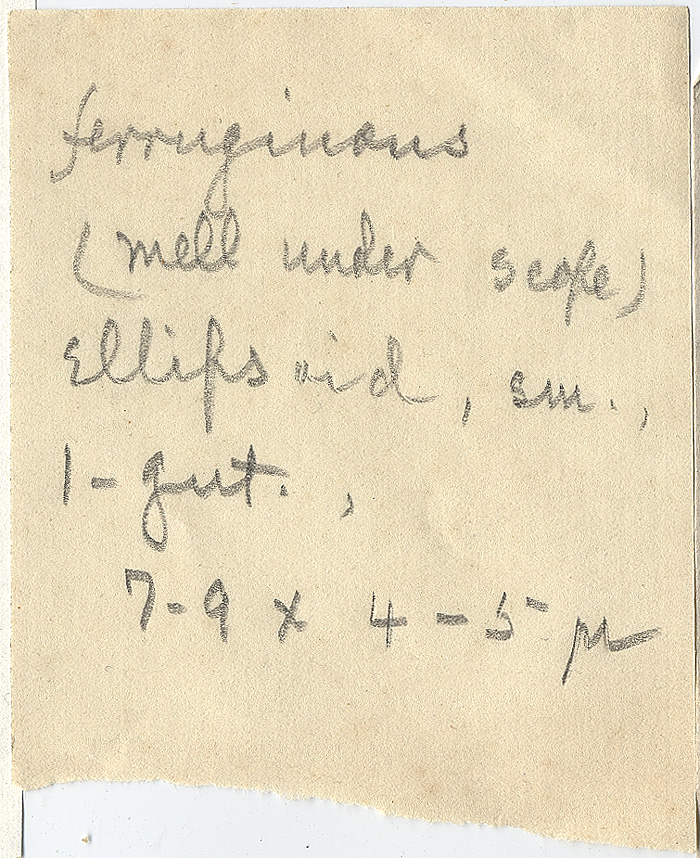 ferruginous
(mell under scope)
Ellipsoid, sm.,
1-gut.,
7-9 x 4-5 µ